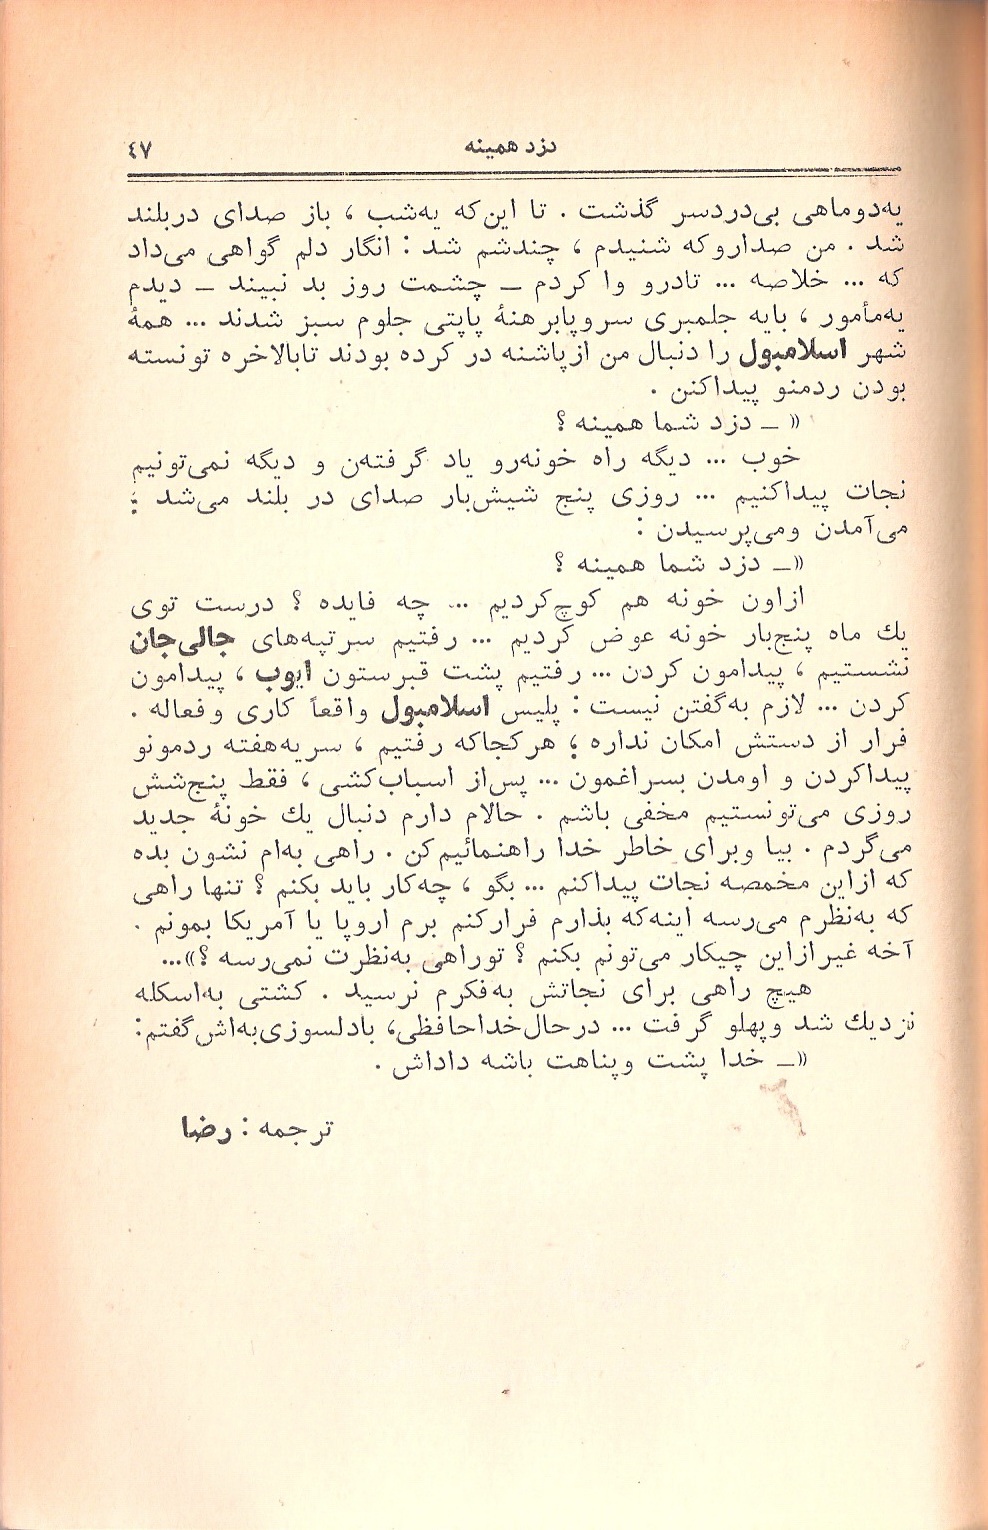 دزد همینه ٤٧
یه‌دوماهی بی‌دردسر گذشت . تا این‌که یه‌شب ، باز صدای دربلند
شد . من صداروکه شنیدم ، چندشم شد : انگار دلم گواهی می‌داد
که ... خلاصه ... تادرو وا کردم ــ چشمت روز بد نبیند ــ دیدم
یه‌مأمور ، بایه جلمبری سروپابرهنهٔ پاپتی جلوم سبز شدند ... همهٔ
شهر اسلامبول را دنبال من ازپاشنه در کرده بودند تابالاخره تونسته
بودن ردمنو پیداکنن .
« ــ دزد شما همینه ؟
خوب ... دیگه راه خونه‌رو یاد گرفته‌ن و دیگه نمی‌تونیم
نجات پیداکنیم ... روزی پنج شیش‌بار صدای در بلند می‌شد ؛
می‌آمدن ومی‌پرسیدن :
«ــ دزد شما همینه ؟
ازاون خونه هم کوچ‌کردیم ... چه فایده ؟ درست توی
یك ماه پنج‌بار خونه عوض کردیم ... رفتیم سرتپه‌های جالی‌جان
نشستیم ، پیدامون کردن ... رفتیم پشت قبرستون ایوب ، پیدامون
کردن ... لازم به‌گفتن نیست : پلیس اسلامبول واقعاً کاری وفعاله .
فرار از دستش امکان نداره ؛ هرکجاکه رفتیم ، سریه‌هفته ردمونو
پیداکردن و اومدن بسراغمون ... پس‌از اسباب‌کشی ، فقط پنج‌شش
روزی می‌تونستیم مخفی باشم . حالام دارم دنبال یك خونهٔ جدید
می‌گردم . بیا وبرای خاطر خدا راهنمائیم‌کن . راهی به‌ام نشون بده
که ازاین مخمصه نجات پیداکنم ... بگو ، چه‌کار باید بکنم ؟ تنها راهی
که به‌نظرم می‌رسه اینه‌که بذارم فرارکنم برم اروپا یا آمریکا بمونم .
آخه غیرازاین چیکار می‌تونم بکنم ؟ توراهی به‌نظرت نمی‌رسه ؟»...
هیچ راهی برای نجاتش به‌فکرم نرسید . کشتی به‌اسکله
نزدیك شد وپهلو گرفت ... درحال‌خداحافظی، بادلسوزی‌به‌اش‌گفتم:
«ــ خدا پشت وپناهت باشه داداش .
ترجمه : رضا